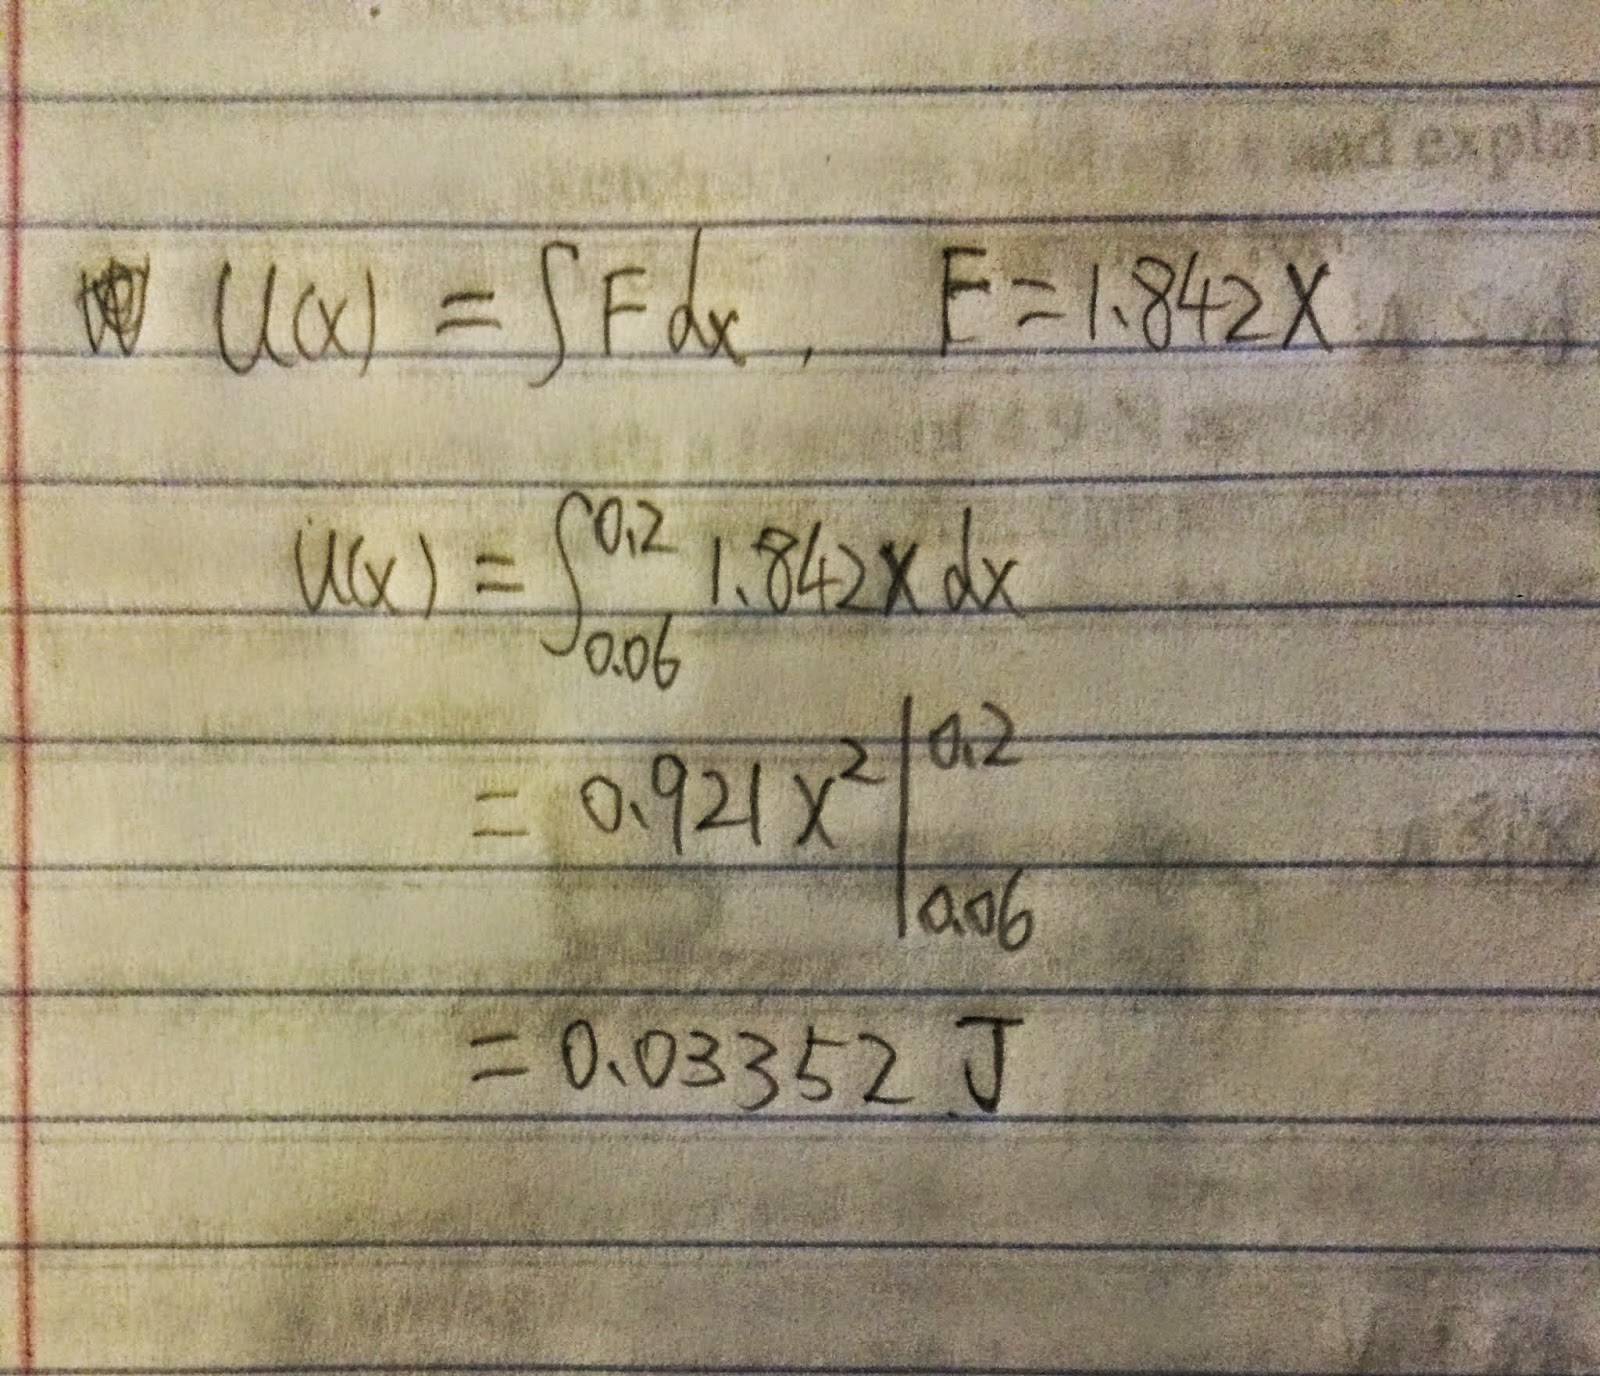 and explai
U(x) = ∫ F dx, F = 1.842X
U(x) = ∫_{0.06}^{0.2} 1.842x dx
= 0.921x² |_{0.06}^{0.2}
= 0.03352 J